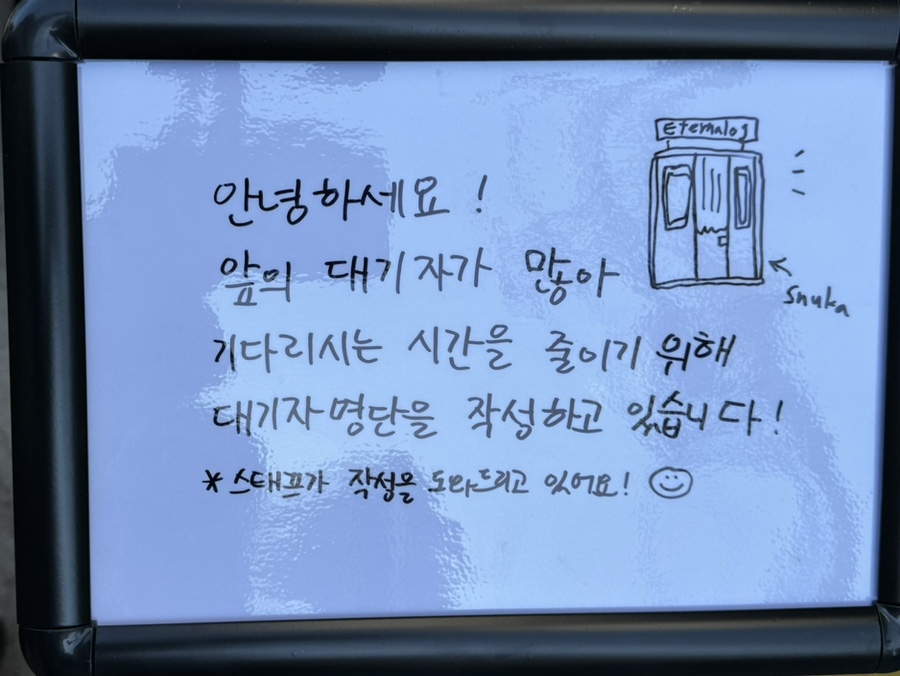 Eternalog
안녕하세요!
앞의 대기자가 많아
기다리시는 시간을 줄이기 위해
대기자명단을 작성하고 있습니다!
snuka
*스태프가 작성을 도와드리고 있어요!